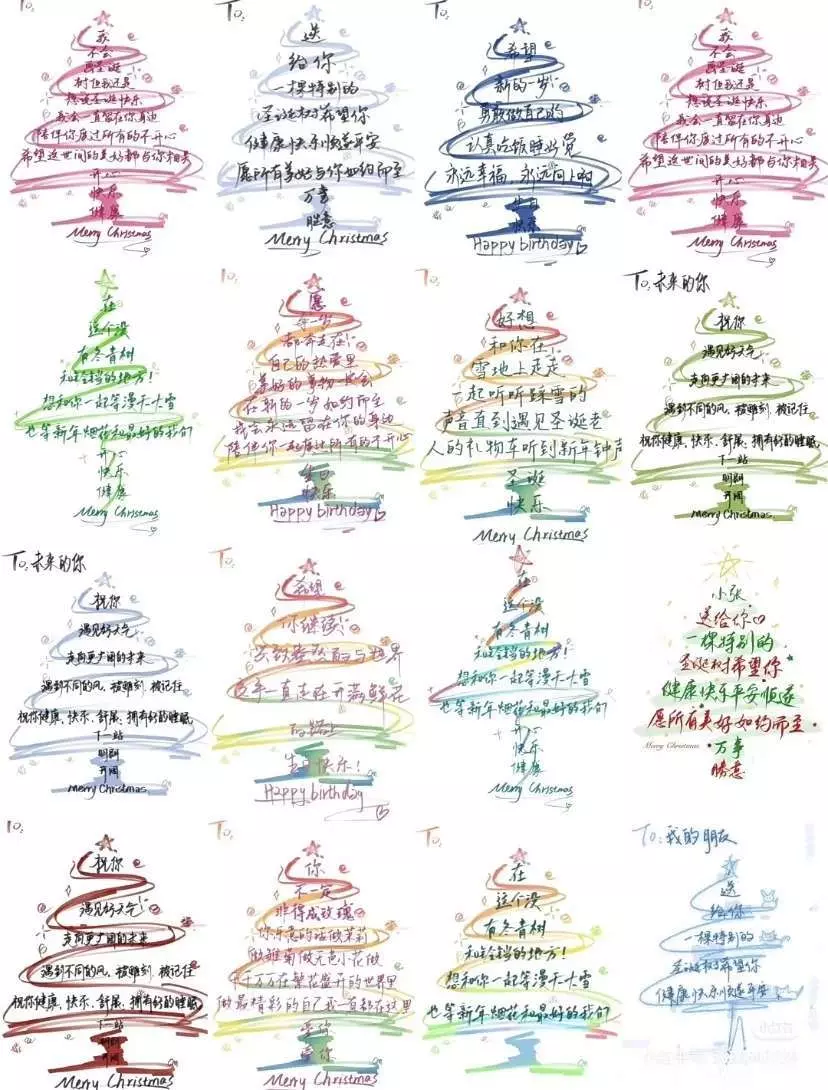 To:
我
不会
画圣诞
树但我还是
想说圣诞快乐
我会一直留在你身边
陪伴你度过所有的不开心
希望这世间的美好都与你相关
开心
快乐
健康
Merry Christmas
To:
送
给你
一棵特别的
圣诞树希望你
健康快乐顺遂平安
愿所有美好与你如约而至
万事
胜意
Merry Christmas
To:
希望
新的一岁
勇敢做自己的
认真吃饭睡好觉
永远幸福,永远向上啊
生日
快乐
Happy birthday
To:
我
不会
画圣诞
树但我还是
想说圣诞快乐
我会一直留在你身边
陪伴你度过所有的不开心
希望这世间的美好都与你相关
开心
快乐
健康
Merry Christmas
在
这个没
有冬青树
和铃铛的地方!
想和你一起等漫天大雪
也等新年烟花和最好的我们
开心
快乐
健康
Merry Christmas
To:
愿
每一岁
都奔走在
自己的热爱里
美好的事物一定会
在新的一岁如约而至
我会永远留在你的身边
陪伴你一起度过所有的不开心
生日
快乐
Happy birthday
To:
好想
和你在
雪地上走走
一起听听踩雪的
声音直到遇见圣诞老
人的礼物车听到新年钟声
圣诞
快乐
Merry Christmas
To:未来的你
祝你
遇见好天气
走向更广阔的未来
遇到不同的风,被雕刻,被记住
祝你健康、快乐、舒展、拥有好的睡眠
下一站
明朗
开阔
Merry Christmas
To:未来的你
祝你
遇见好天气
走向更广阔的未来
遇到不同的风,被雕刻,被记住
祝你健康、快乐、舒展、拥有好的睡眠
下一站
明朗
开阔
Merry Christmas
To:
希望
你继续
一直走在开满鲜花
的路上
生日快乐!
Happy birthday
在
这个没
有冬青树
和铃铛的地方!
想和你一起等漫天大雪
也等新年烟花和最好的我们
开心
快乐
健康
Merry Christmas
小张
送给你
一棵特别的
圣诞树希望你
健康快乐平安顺遂
愿所有美好如约而至
Merry Christmas
万事
胜意
To:
祝你
遇见好天气
走向更广阔的未来
遇到不同的风,被雕刻,被记住
祝你健康、快乐、舒展、拥有好的睡眠
下一站
明朗
开阔
Merry Christmas
To:
你
不一定
非得成玫瑰
你乐意的话做茉莉
做雏菊做无名小花做
千千万万在繁花盛开的世界里
做最精彩的自己我一直都在这里
爱你
Merry Christmas
To:
在
这个没
有冬青树
和铃铛的地方!
想和你一起等漫天大雪
也等新年烟花和最好的我们
To:我的朋友
送
给你
一棵特别的
圣诞树希望你
健康快乐顺遂平安